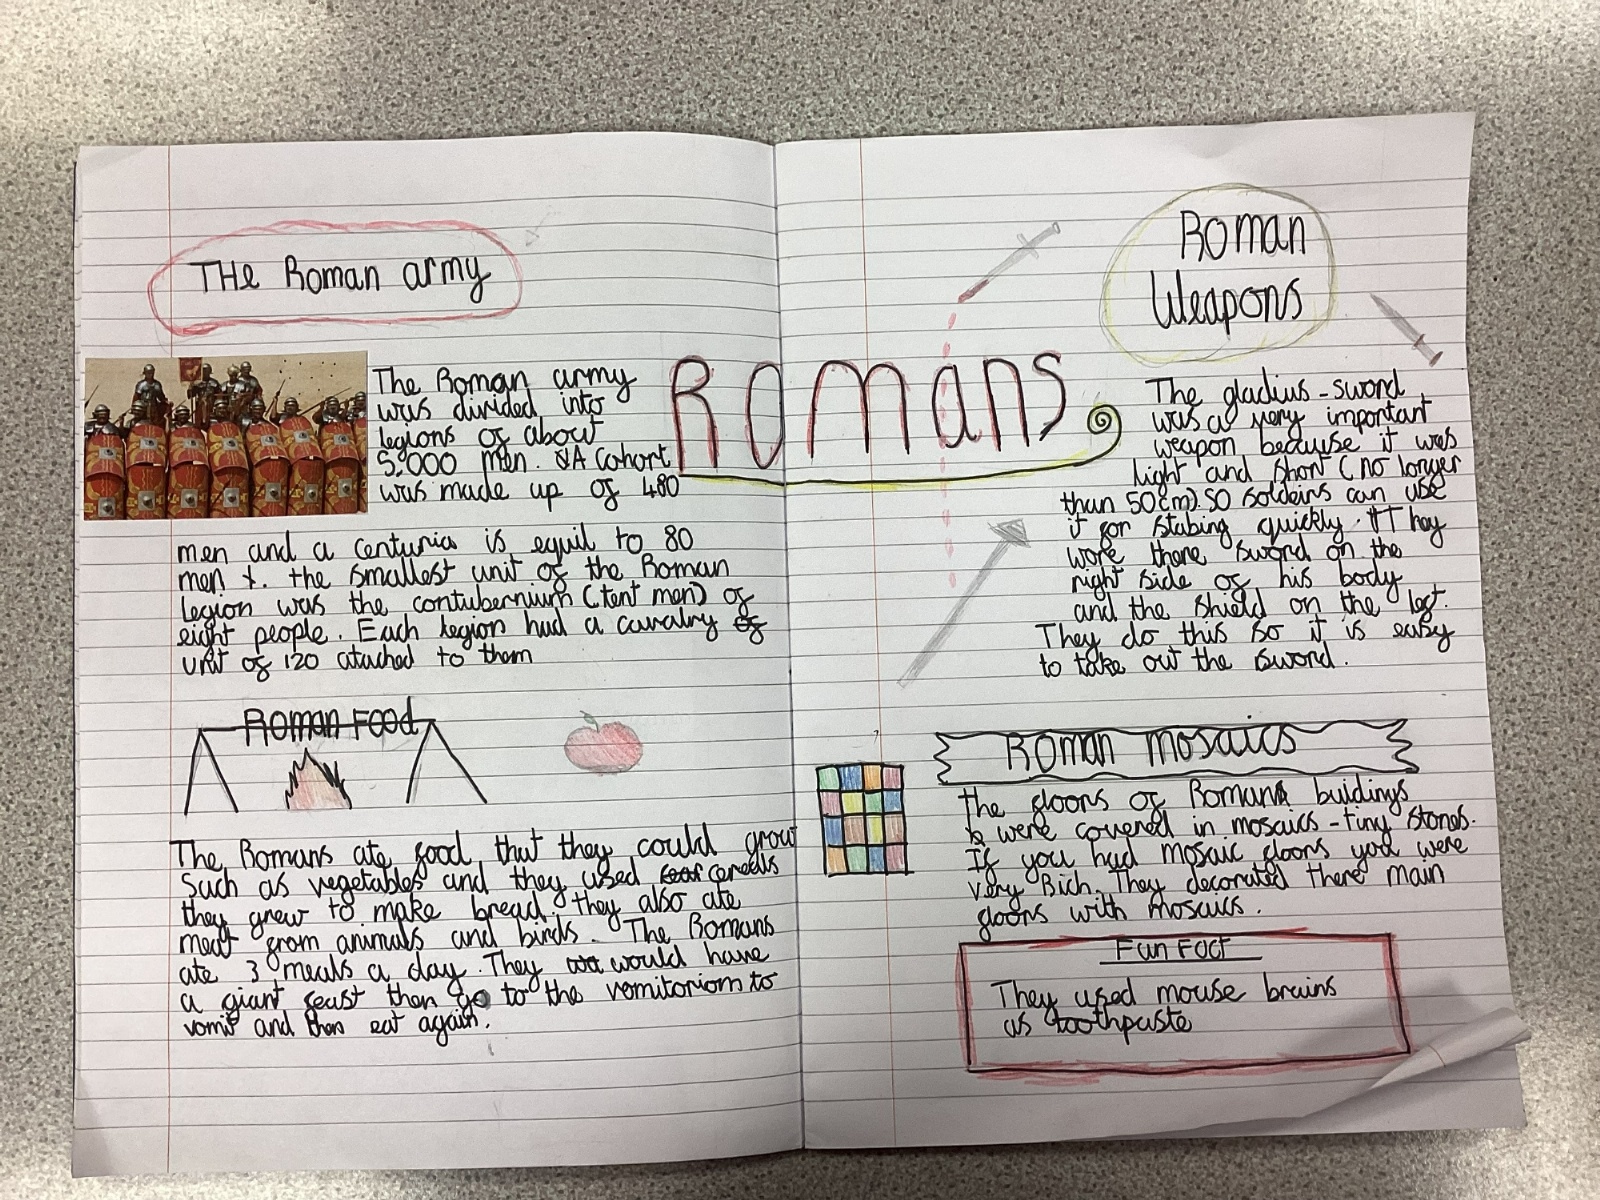 THe Roman army
The Roman army
was divided into
legions of about
5,000 men. A Cohort
was made up of 480
men and a centuria is equil to 80
men. the smallest unit of the Roman
legion was the contubernium (tent men) of
eight people. Each legion had a cavalry of
unit of 120 atached to them
Roman Food
The Romans ate food that they could grow
Such as vegetables and they used cereals
they grew to make bread, they also ate
meat from animals and birds. The Romans
ate 3 meals a day. They would have
a giant feast then go to the vomitoriom to
vomit and then eat again.
Romans
Roman
Weapons
The gladius-sword
was a very important
weapon because it was
light and short (no longer
than 50cm). SO soldeirs can use
it for stabing quickly. They
wore there sword on the
right side of his body
and the shield on the left.
They do this so it is easy
to take out the sword.
Roman mosaics
the floors of Romans buildings
were covered in mosaics - tiny stones.
If you had mosaic floors you were
very Rich. They decorated there main
floors with mosaics.
Fun Fact
They used mouse brains
as toothpaste